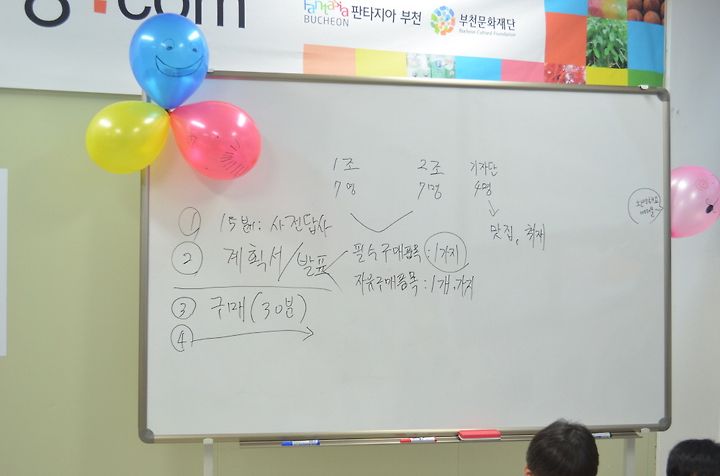 g.com
Fantasia BUCHEON 판타지아 부천
부천문화재단
Bucheon Cultural Foundation
1조 2조 기자단
7명 7명 4명
맛집, 취재
① 15분: 사전답사
② 계획서/발표
필수구매품목 : 1가지
자유구매품목 : 1개.가지
③ 구매(30분)
④